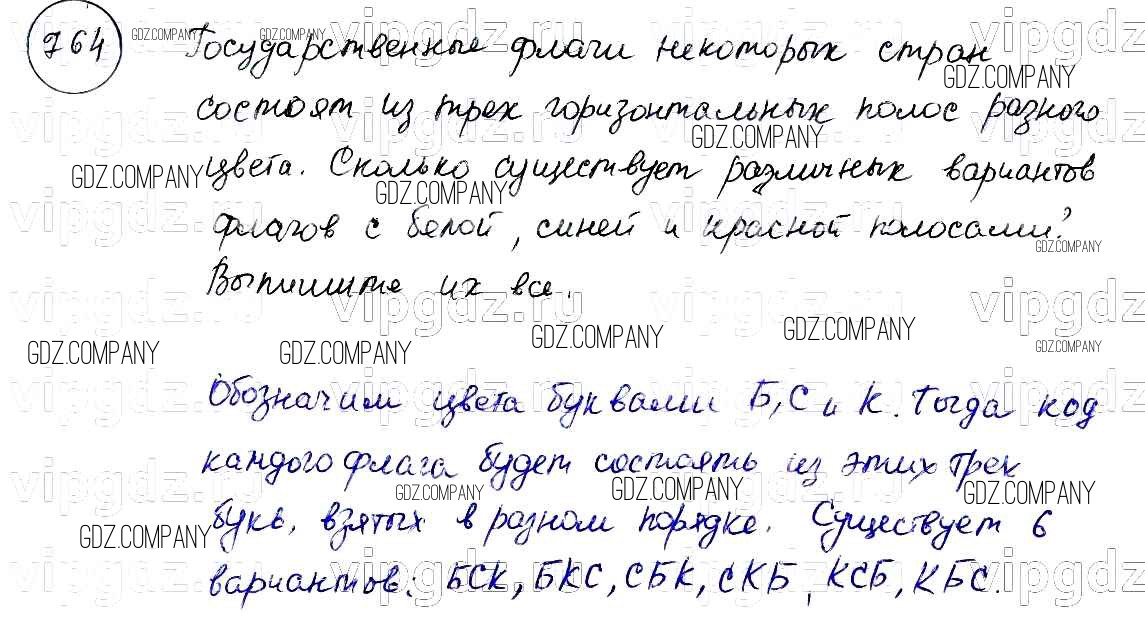 764
Государственные флаги некоторых стран
состоят из трех горизонтальных полос разного
цвета. Сколько существует различных вариантов
флагов с белой, синей и красной полосами?
Выпишите их все.
Обозначим цвета буквами Б, С и К. Тогда код
каждого флага будет состоять из этих трех
букв, взятых в разном порядке. Существует 6
вариантов: БСК, БКС, СБК, СКБ, КСБ, КБС.
vipgdz.ru
GDZ.COMPANY